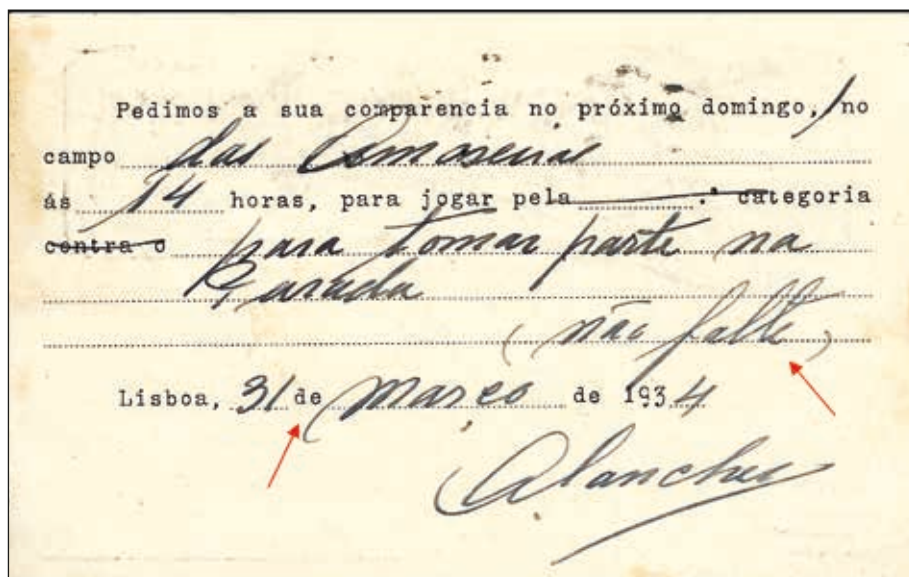 Pedimos a sua comparencia no próximo domingo, 1 no
campo das Amoreiras
ás 14 horas, para jogar pela ........ª categoria
contra o para tomar parte na
Parada
(não falte)
Lisboa, 31 de Março de 1934